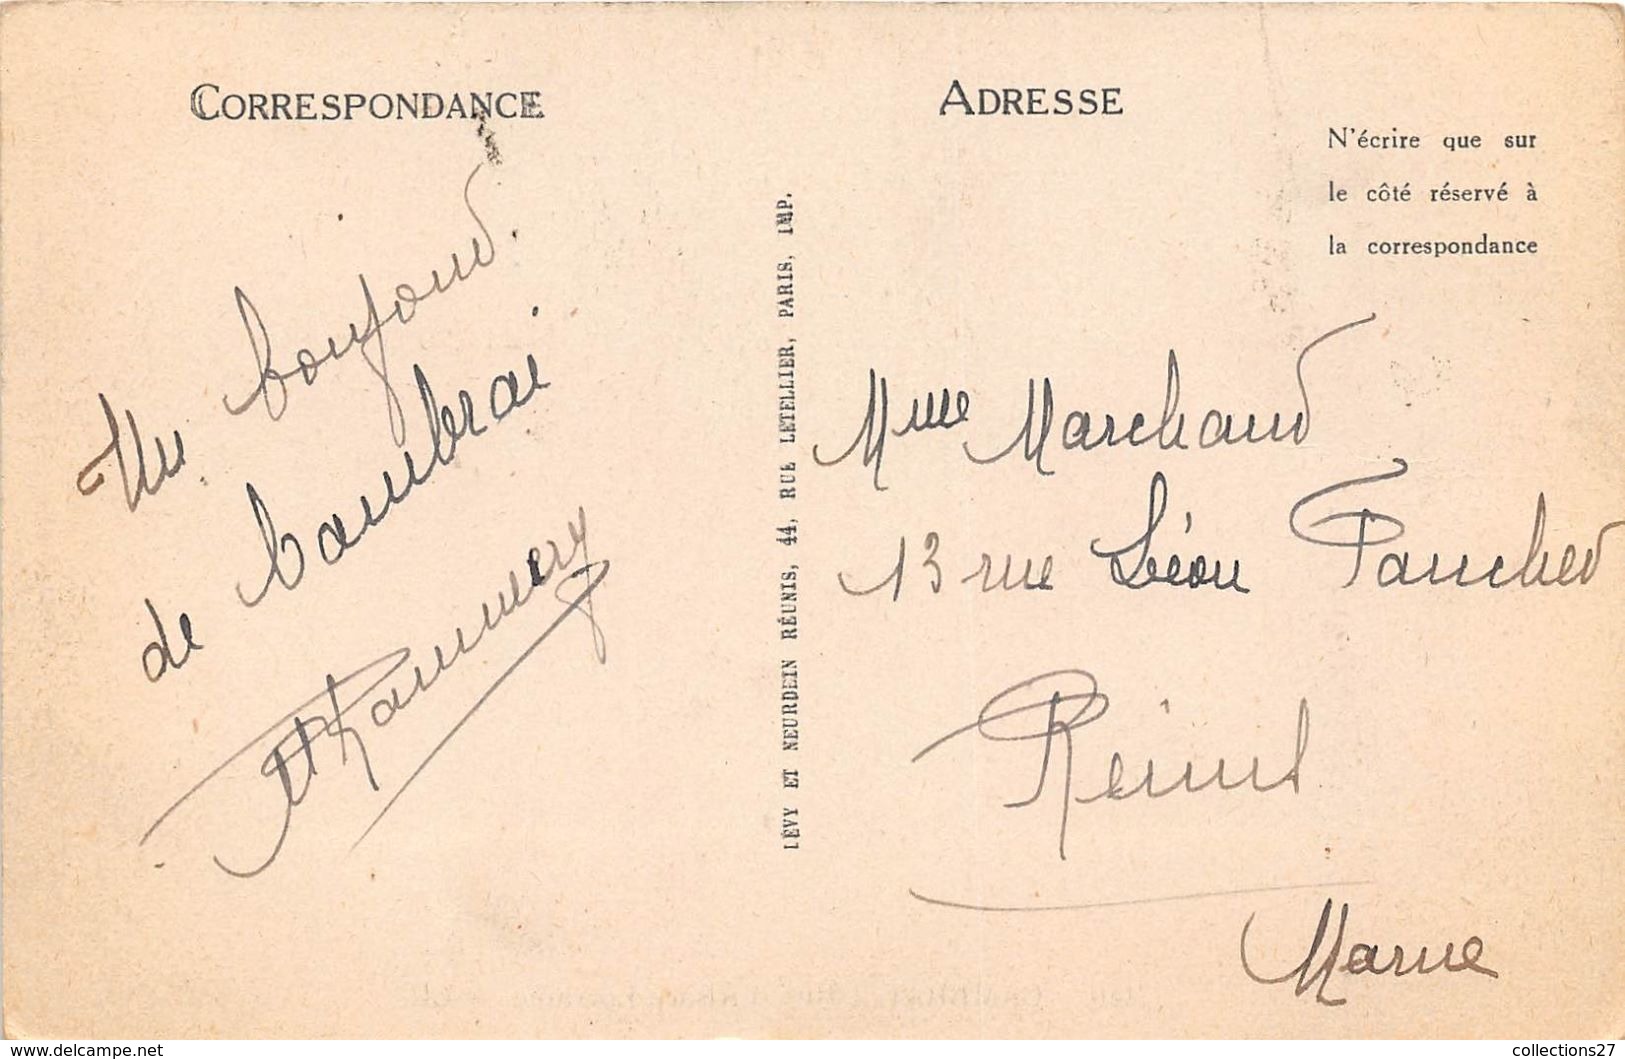 CORRESPONDANCE
Un bonjour
de Cambrai
ADRESSE
N'écrire que sur
le côté réservé à
la correspondance
LÉVY ET NEURDEIN RÉUNIS, 44, RUE LETELLIER, PARIS, IMP.
Mme Marchand
13 rue Léon Faucher
Reims
Marne
collections27
www.delcampe.net